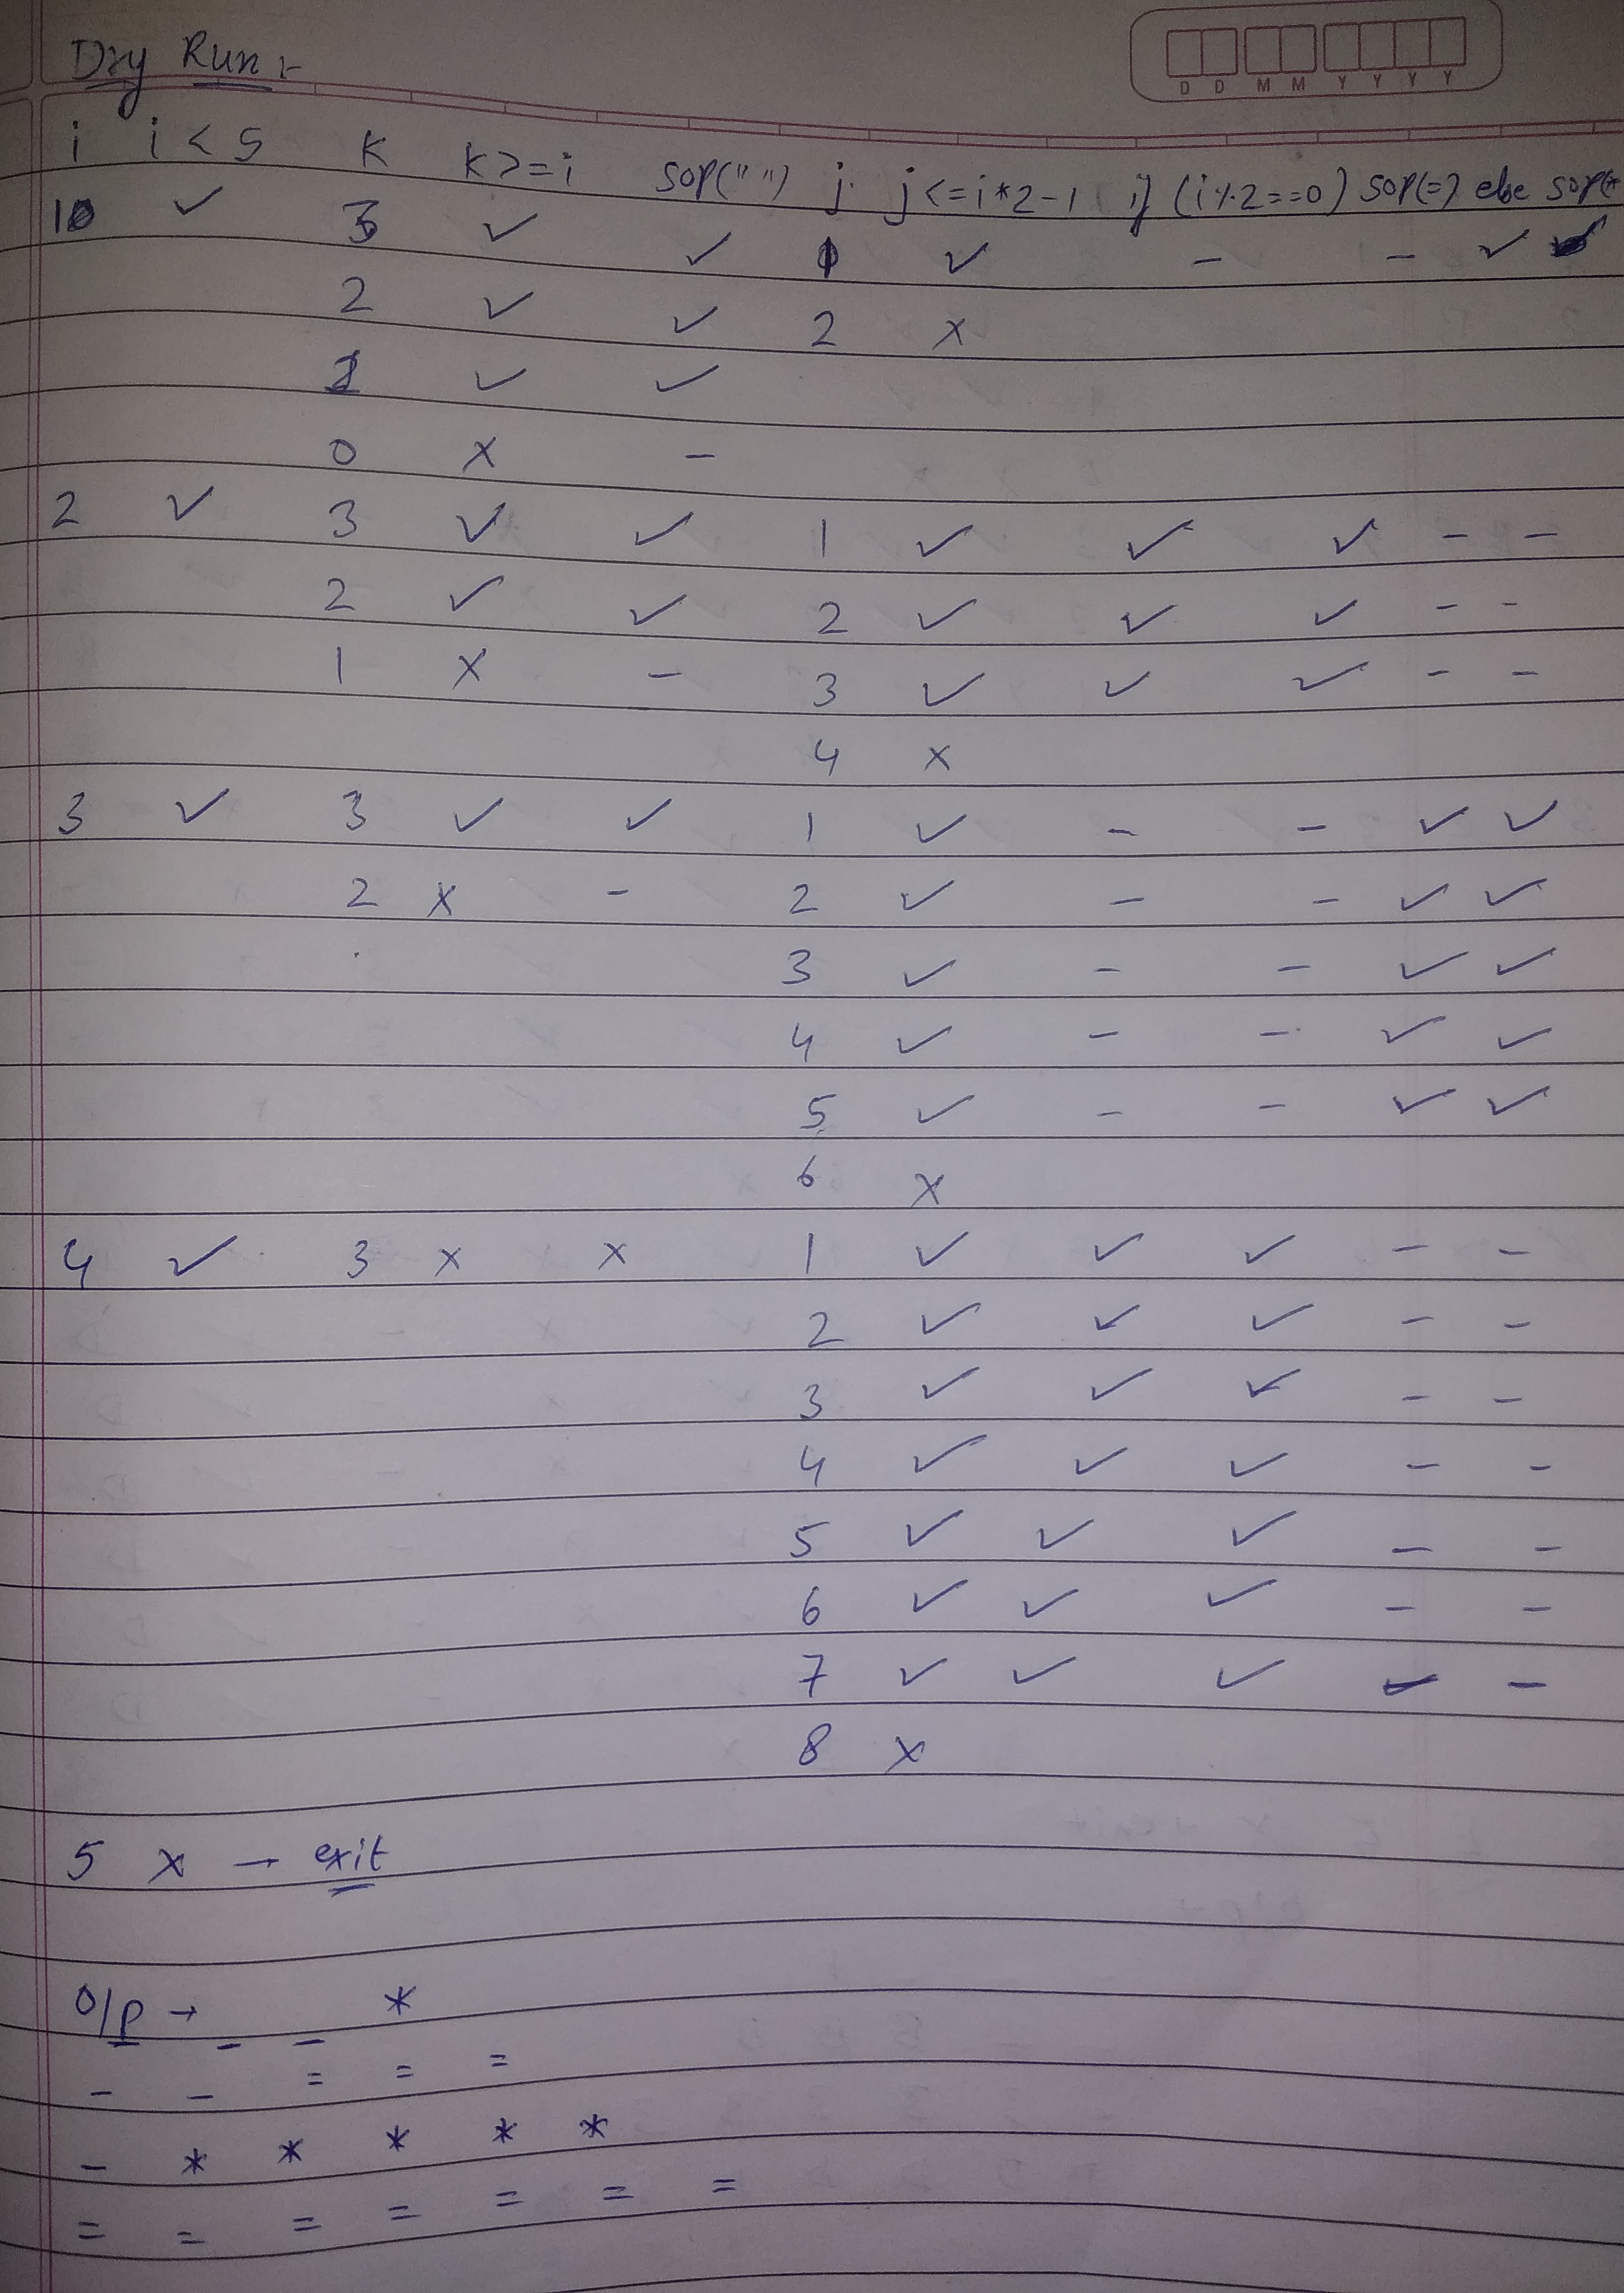 D D M M Y Y Y Y
Dry Run :-
i i < 5 K K >= i sop(" ") j j <= i*2-1 if (i%2==0) sop(=) else sop(*
1 ✓ 3 ✓ ✓ 1 ✓ - - ✓
2 ✓ ✓ 2 x
1 ✓ ✓
0 x -
2 ✓ 3 ✓ ✓ 1 ✓ ✓ ✓ - -
2 ✓ ✓ 2 ✓ ✓ ✓ - -
1 x - 3 ✓ ✓ ✓ - -
4 x
3 ✓ 3 ✓ ✓ 1 ✓ - - ✓ ✓
2 x - 2 ✓ - - ✓ ✓
3 ✓ - - ✓ ✓
4 ✓ - - ✓ ✓
5 ✓ - - ✓ ✓
6 x
4 ✓ 3 x x 1 ✓ ✓ ✓ - -
2 ✓ ✓ ✓ - -
3 ✓ ✓ ✓ - -
4 ✓ ✓ ✓ - -
5 ✓ ✓ ✓ - -
6 ✓ ✓ ✓ - -
7 ✓ ✓ ✓ - -
8 x
5 x → exit
O/p → _ _ *
_ _ = = =
_ * * * * *
= = = = = = =